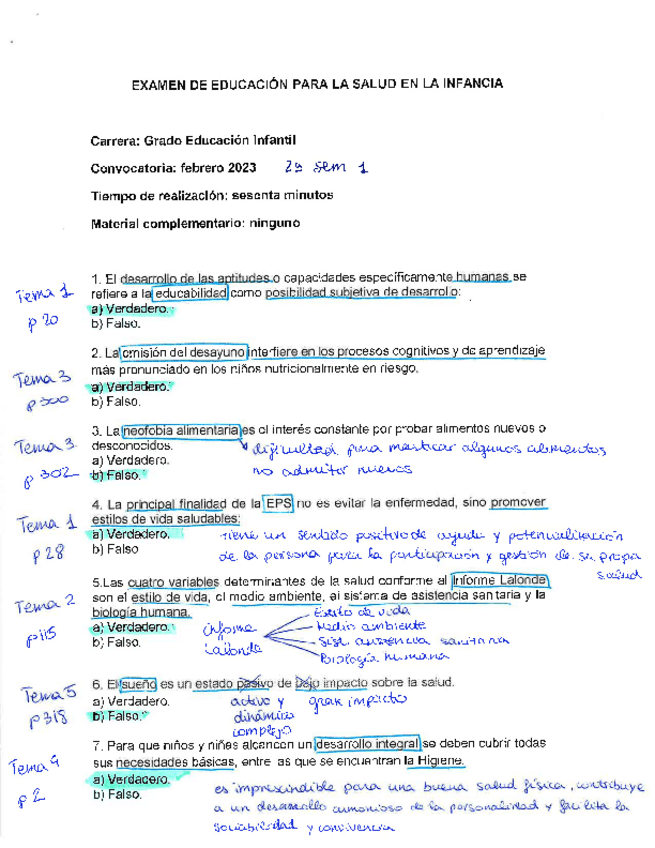 EXAMEN DE EDUCACIÓN PARA LA SALUD EN LA INFANCIA
Carrera: Grado Educación Infantil
Convocatoria: febrero 2023 2ª sem 1
Tiempo de realización: sesenta minutos
Material complementario: ninguno
1. El desarrollo de las aptitudes o capacidades específicamente humanas se
refiere a la educabilidad como posibilidad subjetiva de desarrollo:
a) Verdadero.
b) Falso.
Tema 1
p 20
2. La omisión del desayuno interfiere en los procesos cognitivos y de aprendizaje
más pronunciado en los niños nutricionalmente en riesgo.
a) Verdadero.
b) Falso.
Tema 3
p 300
3. La neofobia alimentaria es el interés constante por probar alimentos nuevos o
desconocidos.
a) Verdadero.
b) Falso.
Tema 3
p 302
dificultad para masticar algunos alimentos
no admitir nuevos
4. La principal finalidad de la EPS no es evitar la enfermedad, sino promover
estilos de vida saludables:
a) Verdadero.
b) Falso
Tema 1
p 28
tiene un sentido positivo de ayuda y potencialización
de la persona para la participación y gestión de su propia
salud
5.Las cuatro variables determinantes de la salud conforme al Informe Lalonde
son el estilo de vida, el medio ambiente, el sistema de asistencia sanitaria y la
biología humana.
a) Verdadero.
b) Falso.
Tema 2
p115
informe
Lalonde
Estilo de vida
Medio ambiente
Sist. asistencia sanitaria
Biología humana
6. El sueño es un estado pasivo de bajo impacto sobre la salud.
a) Verdadero.
b) Falso.
Tema 5
p318
activo y
dinámico
complejo
gran impacto
7. Para que niños y niñas alcancen un desarrollo integral se deben cubrir todas
sus necesidades básicas, entre las que se encuentran la Higiene.
a) Verdadero.
b) Falso.
Tema 4
p 2
es imprescindible para una buena salud física, contribuye
a un desarrollo armonioso de la personalidad y facilita la
sociabilidad y convivencia